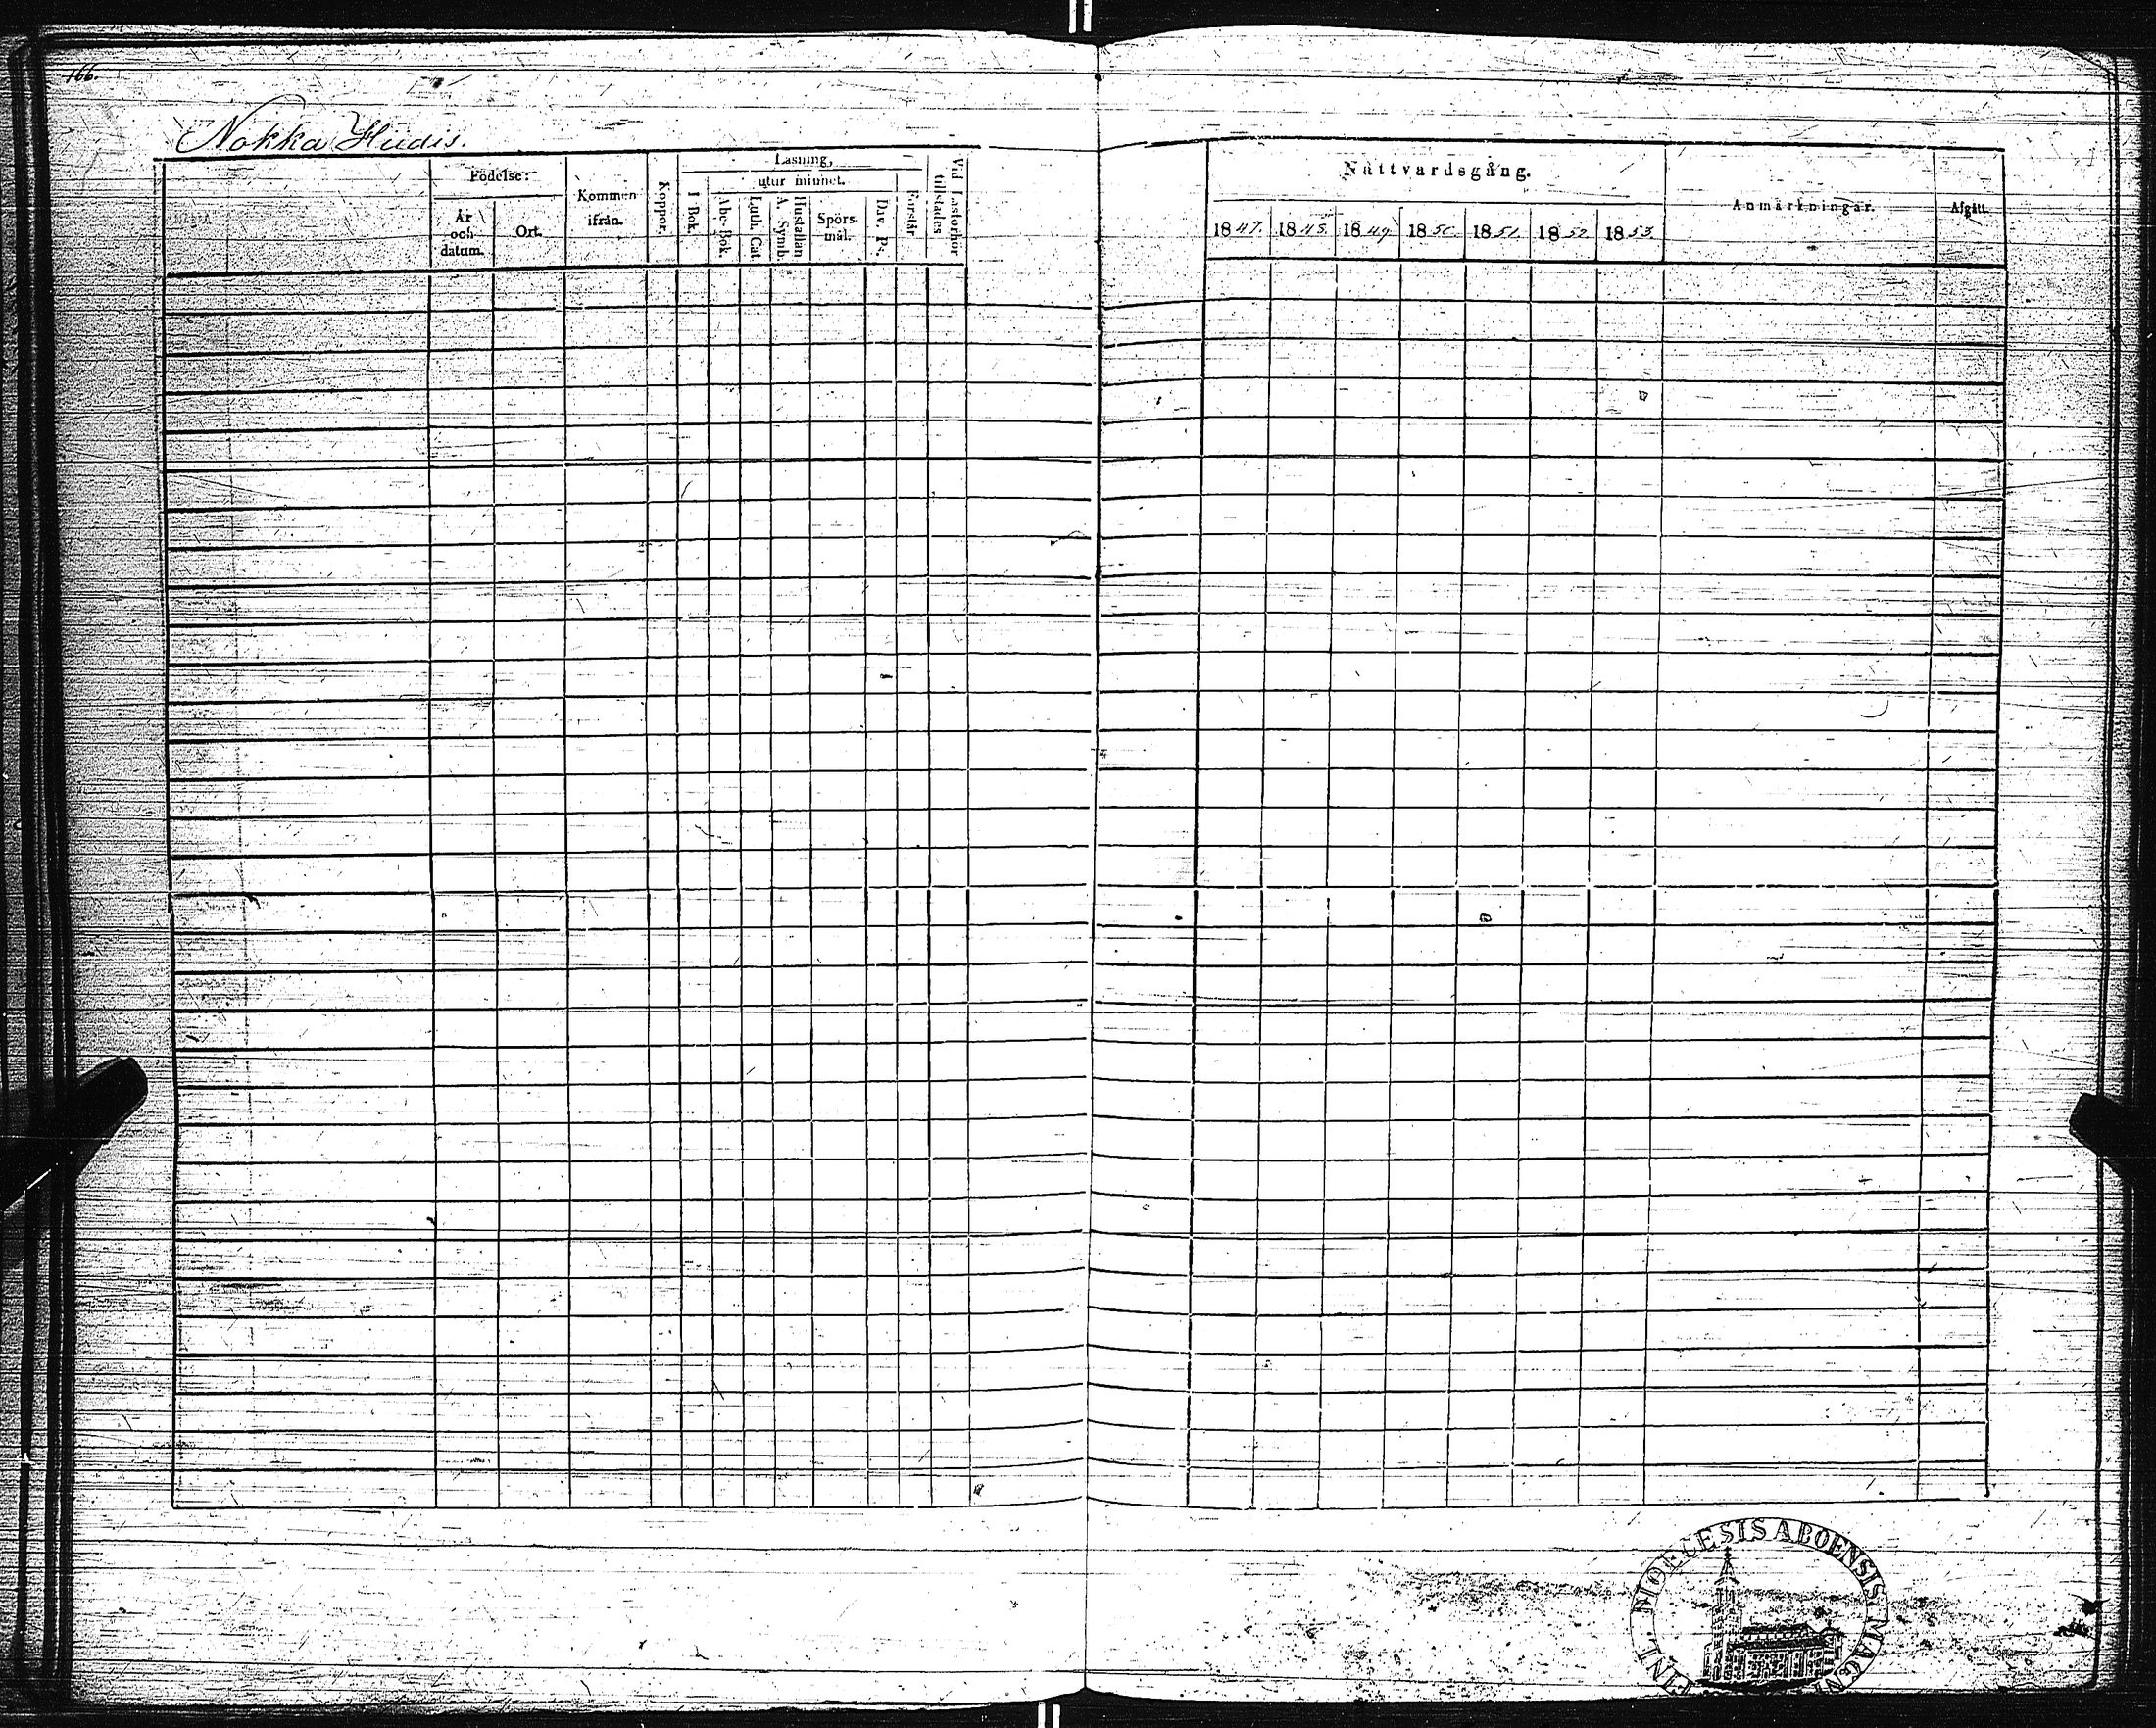 166.
Nokka Hiidis.
Födelse:
År och datum.
Ort.
Kommen ifrån.
Koppor.
Läsning,
I Bok.
utur minnet.
Abc-Bok.
Luth. Cat.
Hustaflan A. Symb.
Spörs-mål.
Dav. Ps.
Förstår
Vid Läsförhör tillstädes
Nattvardsgång.
1847.
1848.
1849.
1850.
1851.
1852.
1853.
Anmärkningar.
Afgått.
DIOECESIS ABOENSIS MAGNI
FINL.